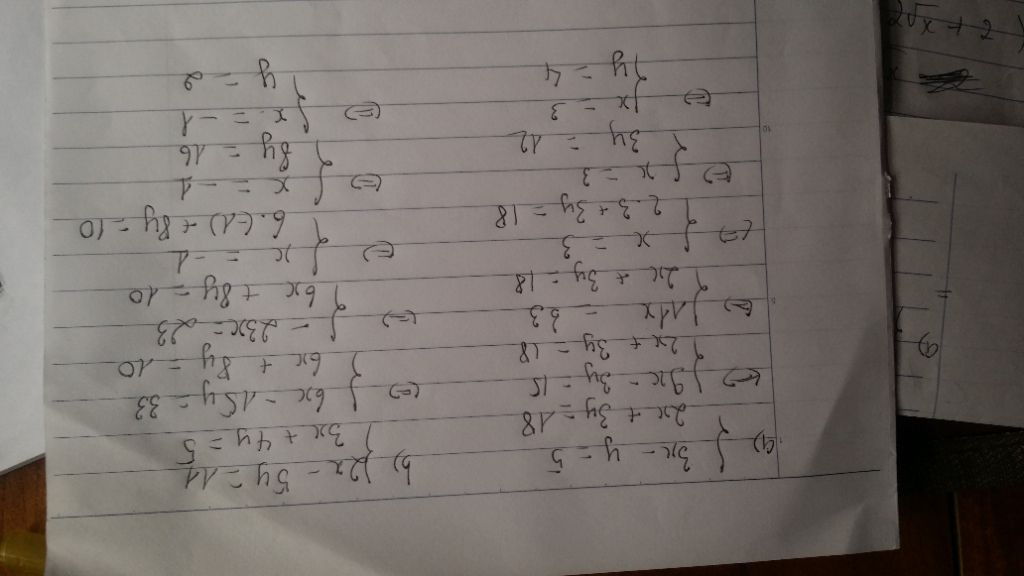 a) { 3x - y = 5
2x + 3y = 18
(=) { 9x - 3y = 15
2x + 3y = 18
(=) { 11x = 33
2x + 3y = 18
(=) { x = 3
2.3 + 3y = 18
(=) { x = 3
3y = 12
(=) { x = 3
y = 4
b) { 2x - 5y = 11
3x + 4y = 5
(=) { 6x - 15y = 33
6x + 8y = 10
(=) { - 23x = 23
6x + 8y = 10
(=) { x = - 1
6.(-1) + 8y = 10
(=) { x = - 1
8y = 16
(=) { x = - 1
y = 2
2√x + 2
a)
=